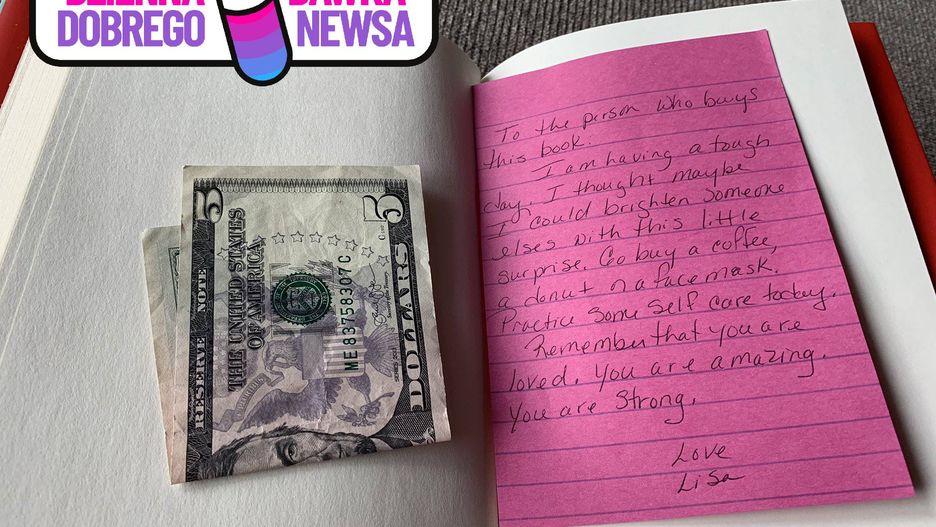 DZIENNA
DOBREGO
DAWKA
NEWSA
5
5
RESERVE NOTE
THE UNITED STATES
OF AMERICA
ME83758307C
DOLLARS
To the person who buys
this book.
I am having a tough
day. I thought maybe
I could brighten someone
elses with this little
surprise. Go buy a coffee,
a donut or a face mask.
Practice some self care today.
Remember that you are
loved. You are amazing.
You are strong.
Love
Lisa